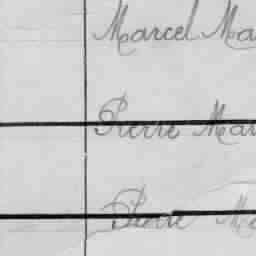 Marcel Ma
Pierre Mar
Pierre Ma